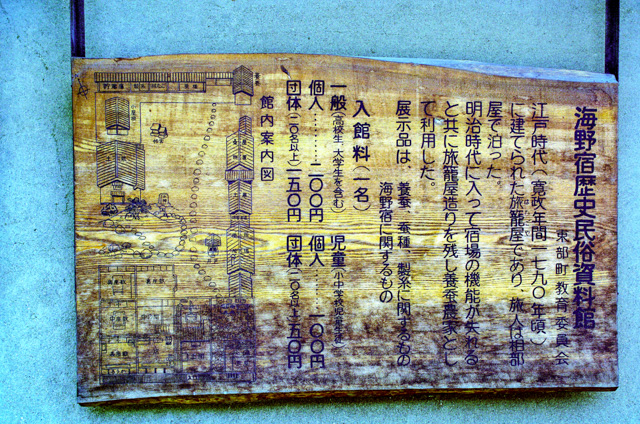 海野宿歴史民俗資料館
東部町教育委員会
江戸時代(寛政年間一七九〇年頃)
に建てられた旅籠屋であり、旅人は相部
屋で泊った。
明治時代に入って宿場の機能が失われる
と共に旅籠屋造りを残し養蚕農家とし
て利用した。
展示品は、養蚕、蚕種、製糸に関するもの
海野宿に関するもの
入館料(一名)
一般(高校生、大学生を含む)
個人………二〇〇円
団体(二〇名以上)一五〇円
児童(小中学校児童生徒)
個人………一〇〇円
団体(二〇名以上)五〇円
館内案内図